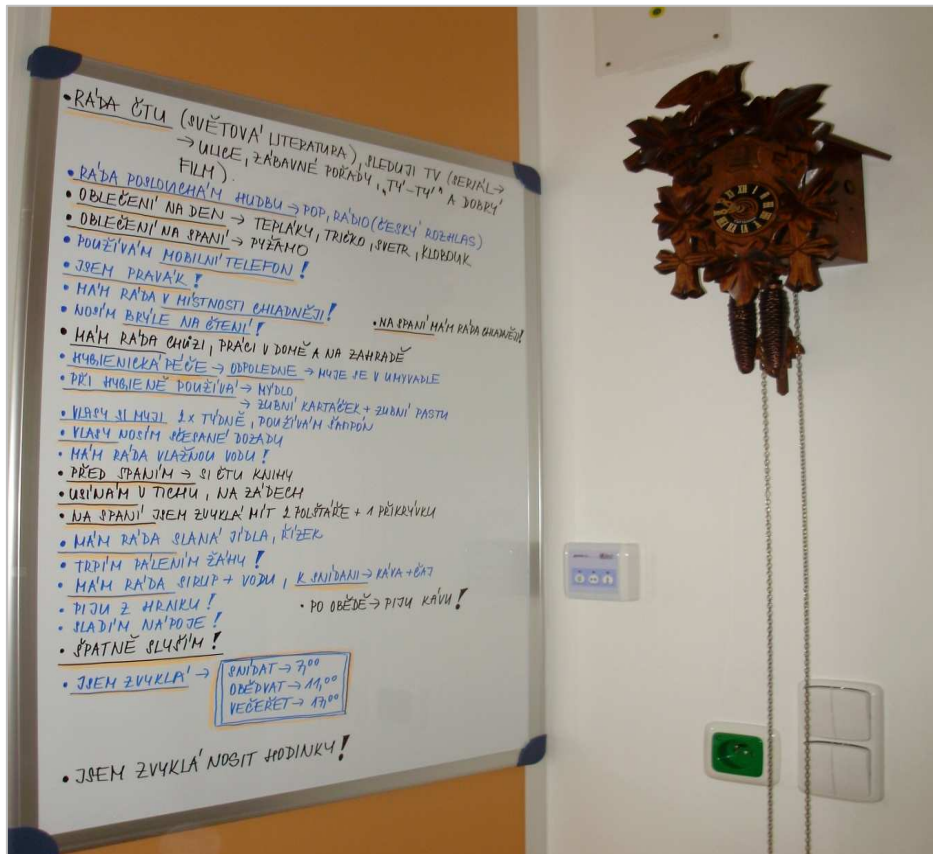 • RÁDA ČTU (SVĚTOVÁ LITERATURA), SLEDUJI TV (SERIÁL →
→ ULICE, ZÁBAVNÉ POŘADY „TÝ-TÝ“ A DOBRÝ
FILM).
• RÁDA POSLOUCHÁM HUDBU → POP, RÁDIO (ČESKÝ ROZHLAS)
• OBLEČENÍ NA DEN → TEPLÁKY, TRIČKO, SVETR, KLOBOUK
• OBLEČENÍ NA SPANÍ → PYŽAMO
• POUŽÍVÁM MOBILNÍ TELEFON!
• JSEM PRAVÁK!
• MÁM RÁDA V MÍSTNOSTI CHLADNĚJI!
• NOSÍM BRÝLE NA ČTENÍ!
• NA SPANÍ MÁM RÁDA CHLADNĚJI!
• MÁM RÁDA CHŮZI, PRÁCI V DOMĚ A NA ZAHRADĚ
• HYGIENICKÁ PÉČE → ODPOLEDNE → MYJE SE V UMYVADLE
• PŘI HYGIENĚ POUŽÍVÁ → MÝDLO
→ ZUBNÍ KARTÁČEK + ZUBNÍ PASTU
• VLASY SI MYJI 2x TÝDNĚ, POUŽÍVÁM ŠAMPON
• VLASY NOSÍM SČESANÉ DOZADU
• MÁM RÁDA VLAŽNOU VODU!
• PŘED SPANÍM → SI ČTU KNIHY
• USÍNÁM V TICHU, NA ZÁDECH
• NA SPANÍ JSEM ZVYKLÁ MÍT 2 POLŠTÁŘE + 1 PŘIKRÝVKU
• MÁM RÁDA SLANÁ JÍDLA, ŘÍZEK
• TRPÍM PÁLENÍM ŽÁHY!
• MÁM RÁDA SIRUP + VODU, K SNÍDANI → KÁVA + ČAJ
• PIJU Z HRNKU!
• PO OBĚDĚ → PIJU KÁVU!
• SLADÍM NÁPOJE!
• ŠPATNĚ SLYŠÍM!
• JSEM ZVYKLÁ →
SNÍDAT → 7,00
OBĚDVAT → 11,00
VEČEŘET → 17,00
• JSEM ZVYKLÁ NOSIT HODINKY!